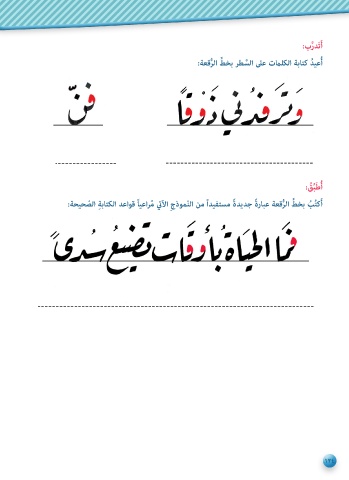 أتدرّب:
أُعيدُ كتابة الكلمات على السّطر بخطّ الرُّقعة:
وَتَرفدُني ذَوْقًا فنّ
أطبّقُ:
أكتُبُ بخطّ الرُّقعة عبارةً جديدةً مستفيداً من النّموذج الآتي مُراعياً قواعد الكتابة الصّحيحة:
فَمَا الحيَاةُ بأَوقَات تضيعُ سُدىً